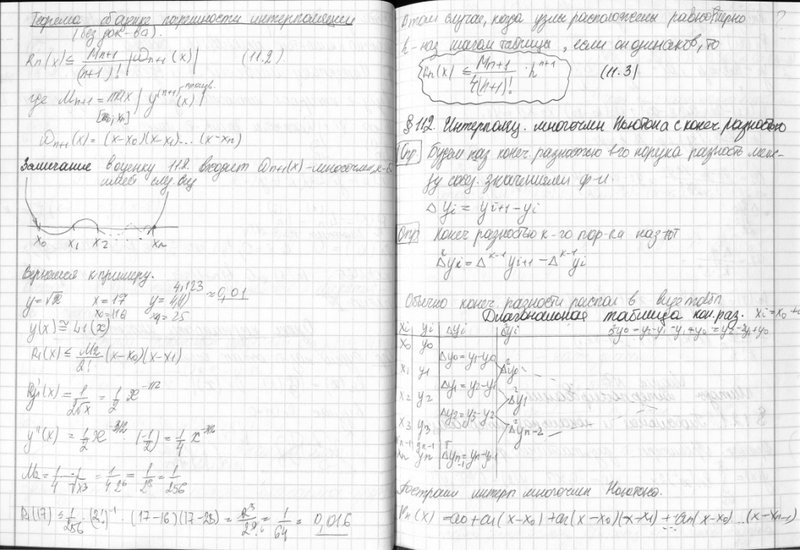 Теорема об оценке погрешности интерполяции
(без док-ва).
Rn(x) ≤ Mn+1/(n+1)! |ωn+1(x)| (11.2)
где Mn+1 = max | y^(n+1) (x)|
[x0, xn]
ωn+1(x) = (x-x0)(x-x1)... (x-xn)
Замечание В оценку 11.2 входит ωn+1(x) -многочлен
имеет след. вид
x0 x1 x2 ... xn
Вернемся к примеру.
y=√x x=17 y= 4,123 ≈0,01
x0=16 x1=25
y(x) ≅ L1(x)
R1(x) ≤ M2/2! (x-x0)(x-x1)
y'(x) = 1/2√x = 1/2 x^-1/2
y''(x) = 1/2 x^-3/2 (-1/2) = 1/4 x^-3/2
= 1/256
R1(17) ≤ 1/256 · (2!)^-1 · (17-16)(17-25) = = 1/64 = 0,016
В том случае, когда узлы расположены равномерно
h-наз шагом таблицы, если он одинаков, то
Rn(x) ≤ Mn+1/4(n+1)! · h^n+1 (11.3)
§ 11.2. Интерполяц. многочлен Ньютона с конеч. разностью
Опр Будем наз конеч разностью 1-го порядка разность меж-
ду сосед. значениями ф-и.
Δ yi = yi+1 - yi
Опр Конеч разностью к-го пор-ка наз-ют
Δ^k yi = Δ^k-1 yi+1 - Δ^k-1 yi
Обычно конеч. разности распол в виде табл
Диагональная таблица кон. раз. xi = x0 +
xi yi Δyi Δ²yi Δ²y0 = y2-y1-y1+y0 = y2-2y1+y0
x0 y0
Δy0=y1-y0
x1 y1 Δ²y0
Δy1=y2-y1
x2 y2 Δ²y1
Δy2=y3-y2
x3 y3 Δ²yn-2
xn-1 yn-1
xn yn Δyn-1=yn-yn-1
Построим интерп многочлен Ньютона.
Pn(x) = a0 + a1(x-x0) + a2(x-x0)(x-x1) + ... an(x-x0)...(x-xn-1)